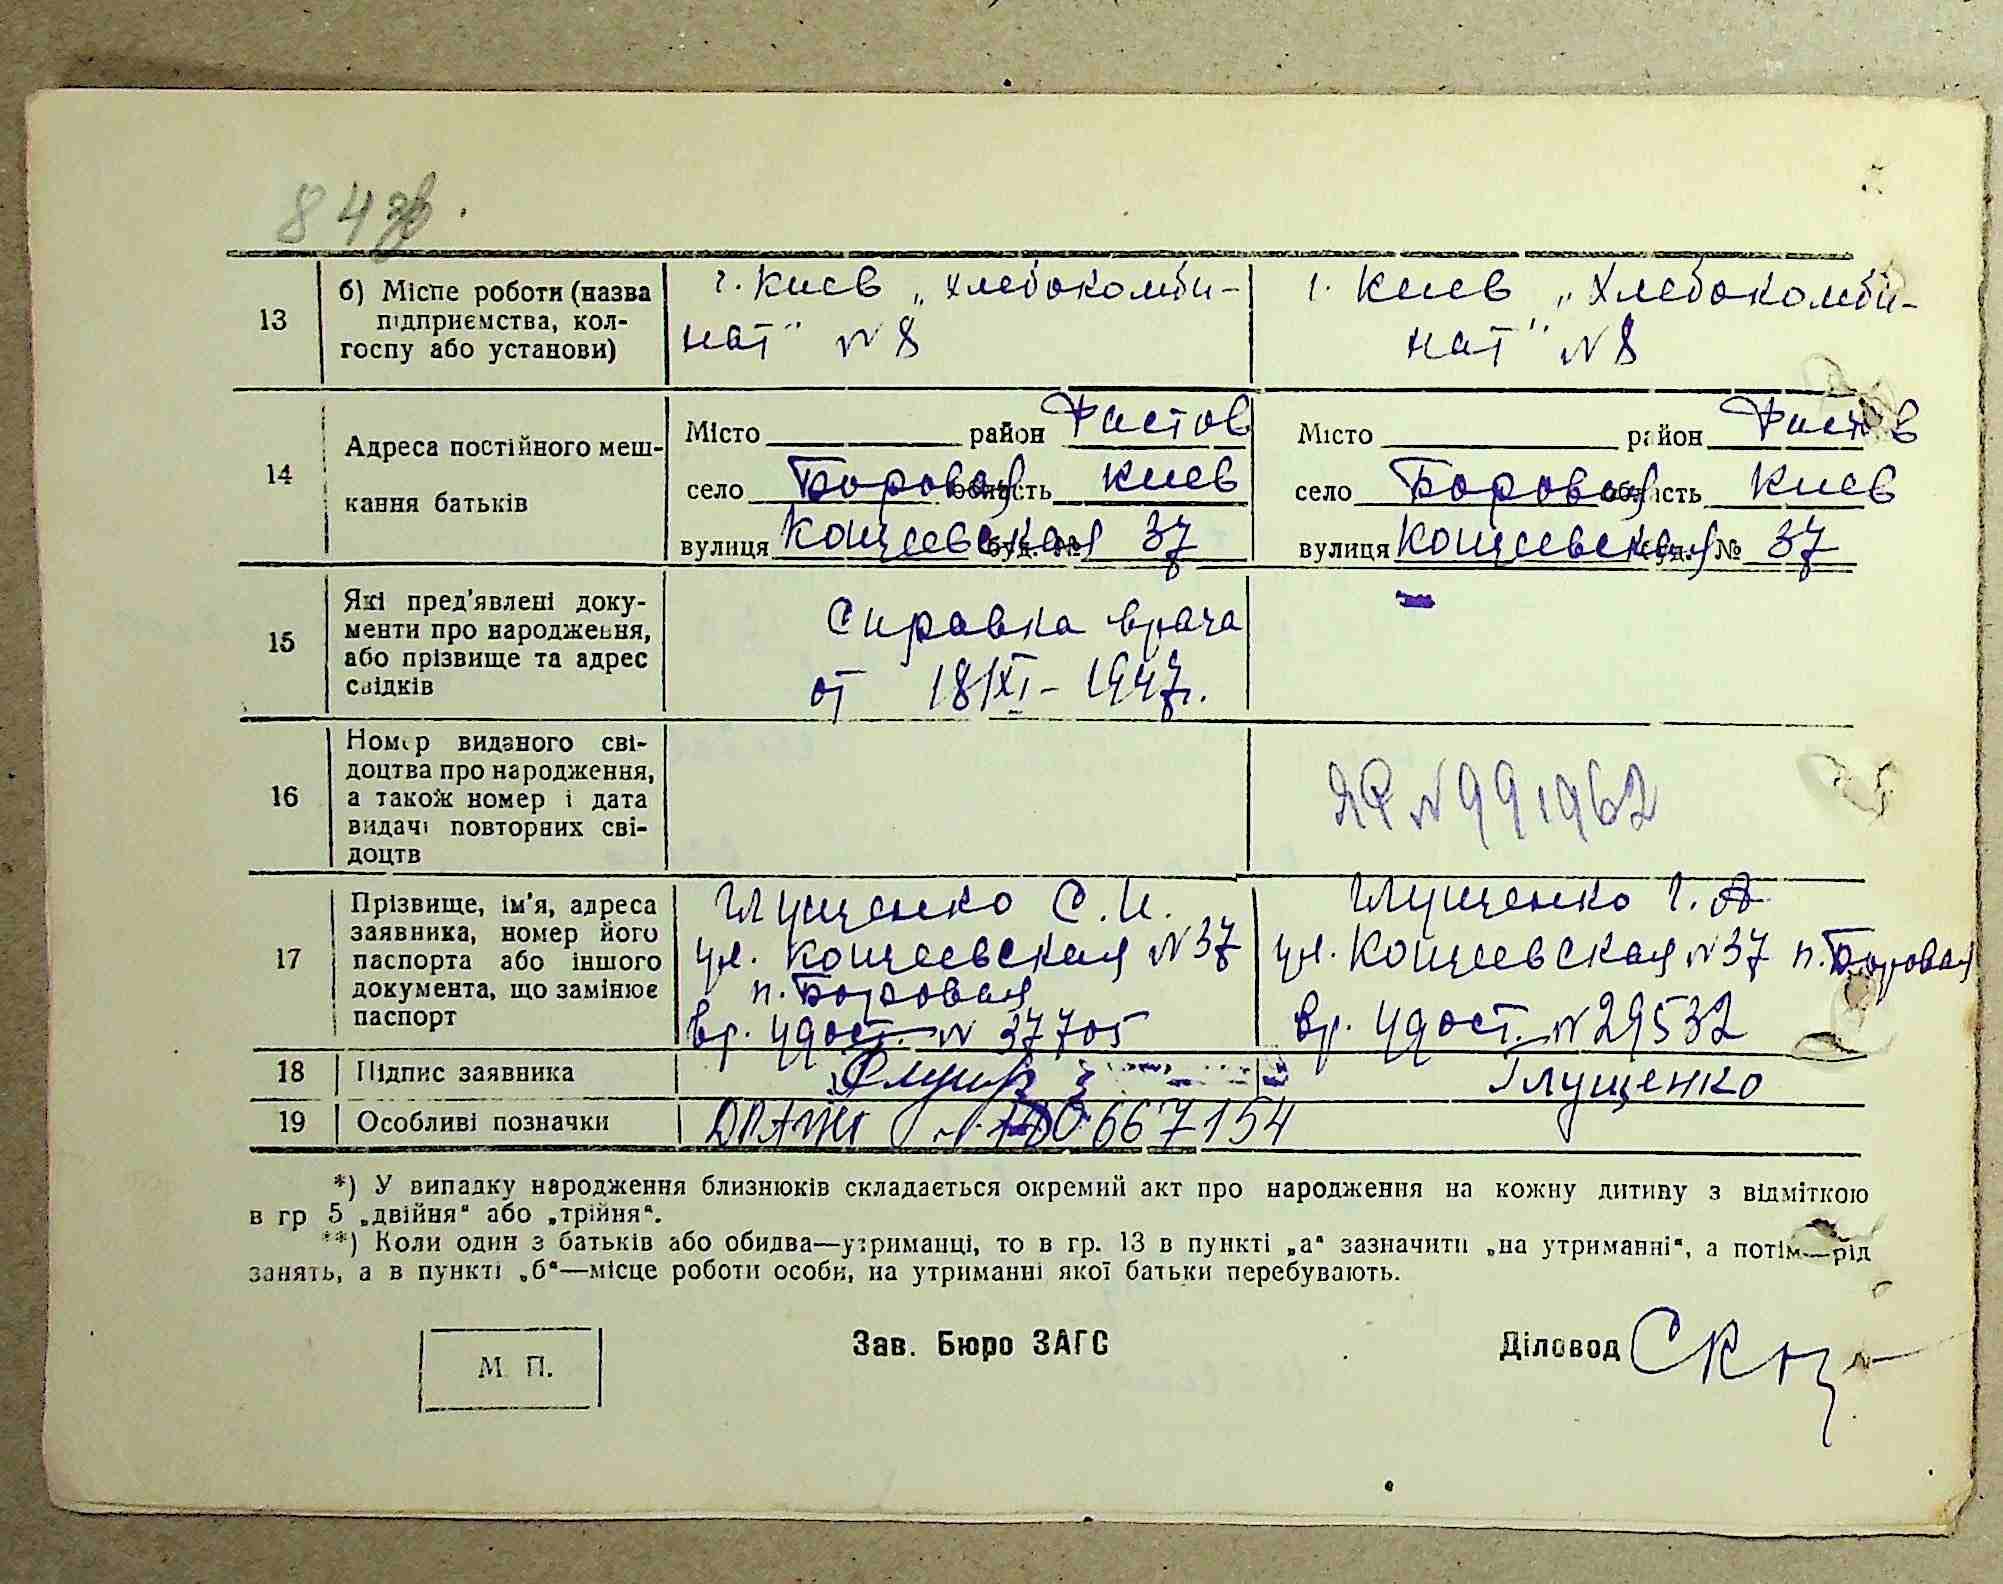 84 зв.
13
б) Місце роботи (назва
підприємства, кол-
госпу або установи)
г. Киев „Хлебокомби-
нат" N 8
г. Киев „Хлебокомби-
нат" N 8
14
Адреса постійного меш-
кання батьків
Місто район Фастов
село Боровая область Киев
вулиця Кощеевская буд. № 37
Місто район Фастов
село Боровая область Киев
вулиця Кощеевская буд. № 37
15
Які пред'явлені доку-
менти про народження,
або прізвище та адрес
свідків
Справка врача
от 18/XI - 1947г.
16
Номер виданого сві-
доцтва про народження,
а також номер і дата
видачі повторних сві-
доцтв
ЯР N 991962
17
Прізвище, ім'я, адреса
заявника, номер його
паспорта або іншого
документа, що замінює
паспорт
Глущенко С. И.
ул. Кощеевская N 37
п. Боровая
вр. удост. N 37705
Глущенко Г. А
ул. Кощеевская N 37 п. Боровая
вр. удост. N 29532
18
Підпис заявника
Глущенко
19
Особливі позначки
667154
*) У випадку народження близнюків складається окремий акт про народження на кожну дитину з відміткою
в гр 5 „двійня" або „трійня".
**) Коли один з батьків або обидва—утриманці, то в гр. 13 в пункті „а" зазначити „на утриманні", а потім—рід
занять, а в пункті „б"—місце роботи особи, на утриманні якої батьки перебувають.
М. П.
Зав. Бюро ЗАГС
Діловод